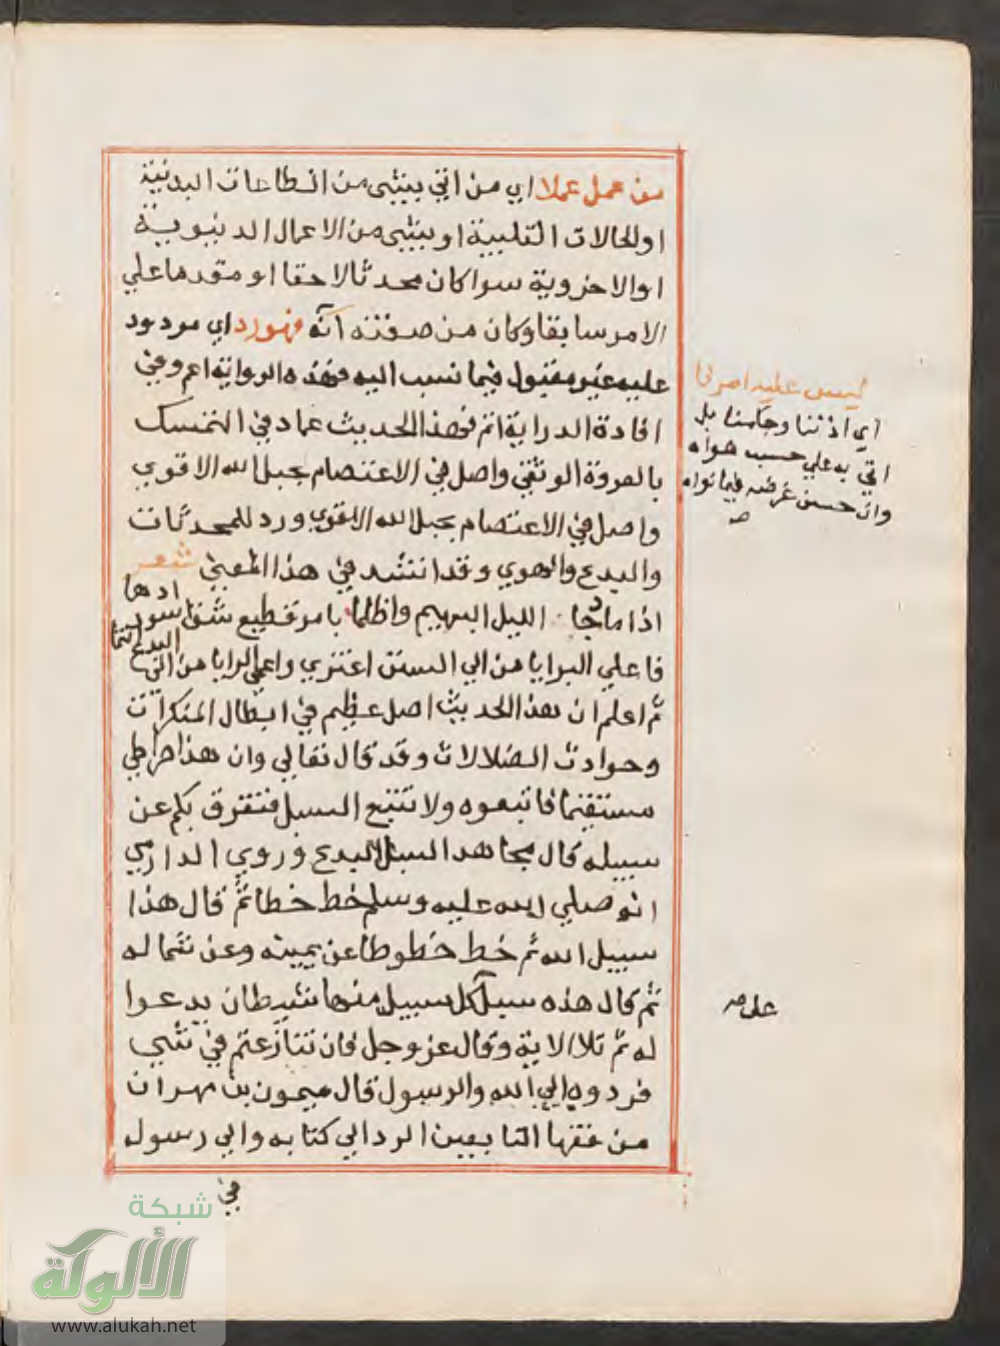 من عمل عملا اي من اتي بشي من الطاعات البدنية
او الحالات القلبية او بشي من الاعمال الدنيوية
او الاخروية سوا كان محدثا لاحقا او مقدما علي
الامر سابقا وكان من صفته انه فهو رد اي مردود
عليه غير مقبول فيما نسب اليه فهذه الرواية اعم وفي
افادة الدراية اتم فهذا الحديث عماد في التمسك
بالعروة الوثقي واصل في الاعتصام بحبل الله الاقوي
واصل في الاعتصام بحبل الله الاقوي ورد للمحدثات
والبدع والهوي وقد انشد في هذا المعني شعر
اذا ما دجا الليل البهيم واظلما بامر فظيع شق اسود ادهما
فاعلي البرايا من الي السنن اعتزي واعمي البرايا من الي البدع انتما
ثم اعلم ان هذا الحديث اصل عظيم في ابطال المنكرات
وحوادث الضلالات وقد قال تعالي وان هذا صراطي
مستقيما فاتبعوه ولا تتبعوا السبل فتفرق بكم عن
سبيله قال مجاهد السبل البدع وروي الدارمي
انه صلي الله عليه وسلم خط خطا ثم قال هذا
سبيل الله ثم خط خطوطا عن يمينه وعن شماله
ثم قال هذه سبل كل سبيل منها شيطان يدعوا
له ثم تلا الاية وقال عز وجل فان تنازعتم في شي
فردوه الي الله والرسول قال ميمون بن مهران
من فقها التابعين الرد الي كتابه والي رسوله
في
ليس عليه امرنا
اي اذننا وحكمنا بل
اتي به علي حسب هواه
وان حسن غرضه فيما نواه
صح
علي صح
شبكة
الألوكة
www.alukah.net